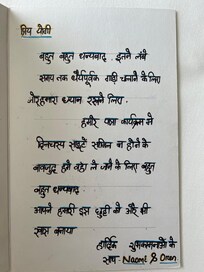 प्रिय योगी
बहुत बहुत धन्यवाद, इतने लंबे
समय तक धैर्यपूर्वक गाड़ी चलाने के लिए
और हमारा ध्यान रखने लिए.
हमारे यात्रा कार्यक्रम से
दिलचस्प साइटें शामिल न होने के
बावजूद हमें वहां ले जाने के लिए बहुत
बहुत धन्यवाद
आपने हमारी इस छुट्टी को और भी
खास बनाया
हार्दिक शुभकामनाओं के
साथ Naomi & Oren